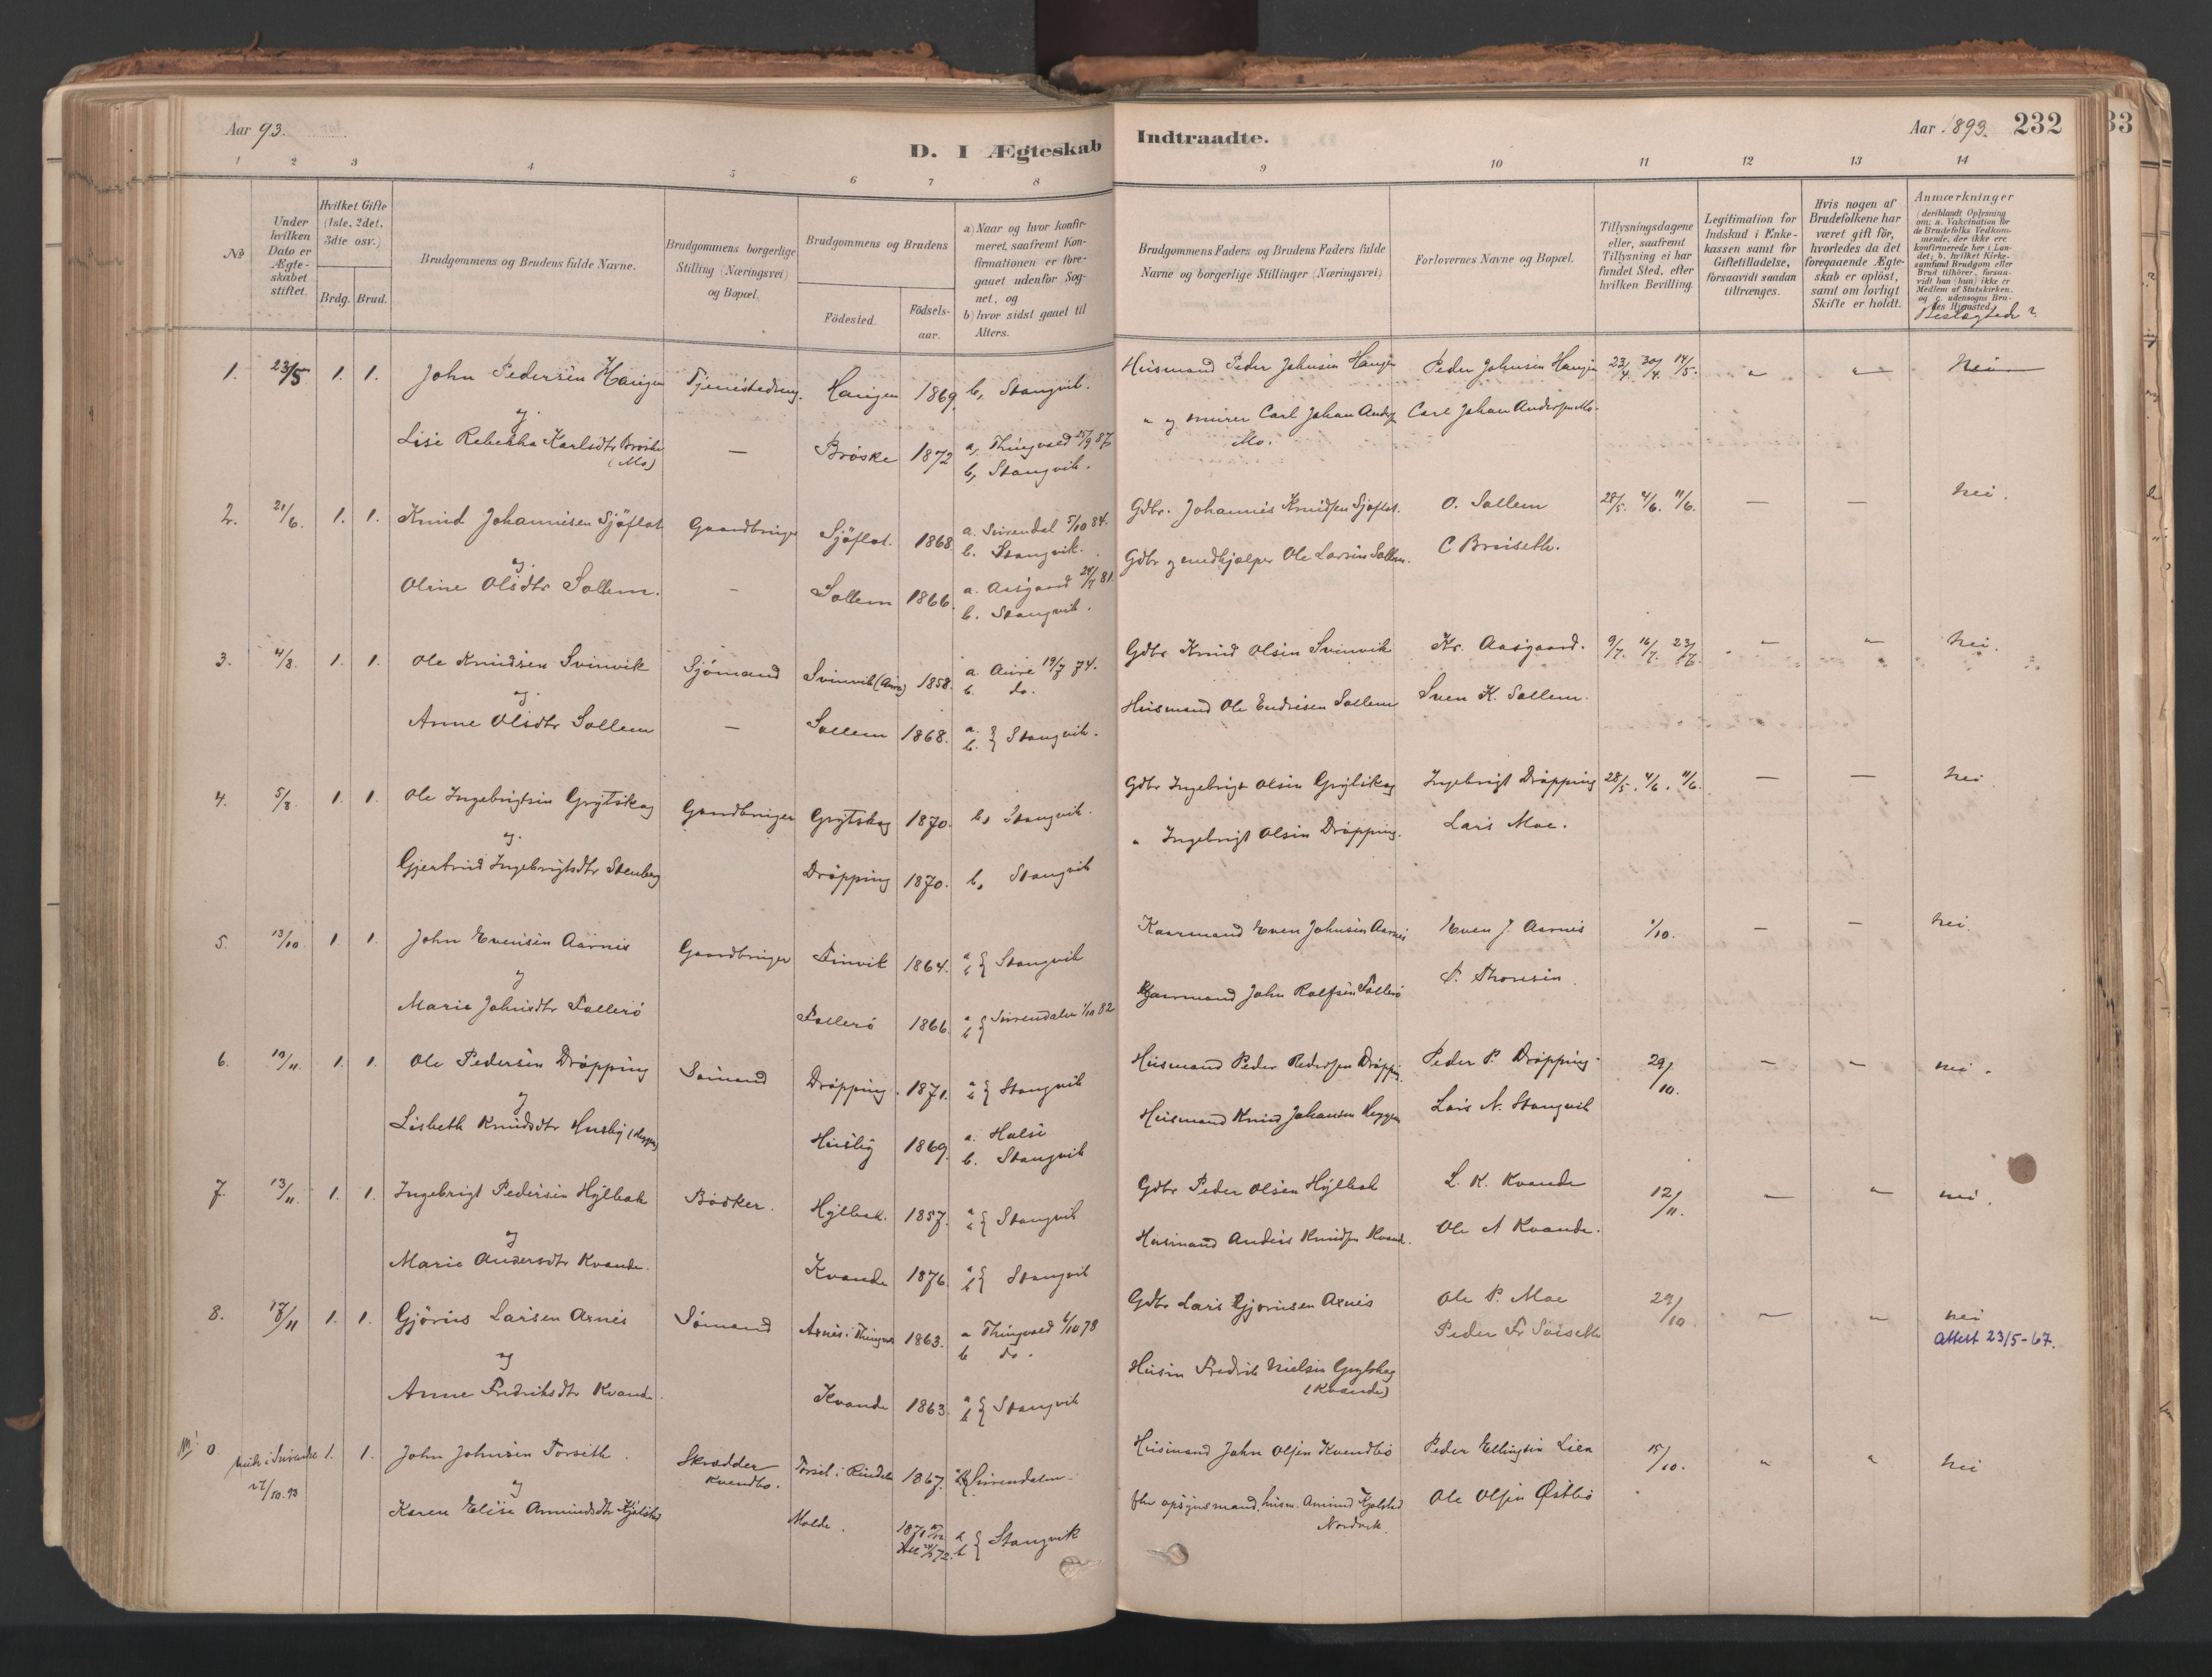 Aar 93.
D. I Ægteskab
Indtraadte.
Aar 1893. 232
33
1 2 3 4 5 6 7 8 9 10 11 12 13 14
No
Under hvilken Dato er Ægteskabet stiftet.
Hvilket Gifte (1ste, 2det, 3die osv.)
Brdg. Brud.
Brudgommens og Brudens fulde Navne.
Brudgommens borgerlige Stilling (Næringsvei) og Bopæl.
Brudgommens og Brudens
Födested.
Födselsaar.
a) Naar og hvor konfirmeret, saafremt Konfirmationen er foregaaet udenfor Sognet, og
b) hvor sidst gaaet til Alters.
Brudgommens Faders og Brudens Faders fulde Navne og borgerlige Stillinger (Næringsvei)
Forlovernes Navne og Bopæl.
Tillysningsdagene eller, saafremt Tillysning ei har fundet Sted, efter hvilken Bevilling.
Legitimation for Indskud i Enkekassen samt for Giftetilladelse, forsaavidt saadan tiltrænges.
Hvis nogen af Brudefolkene har været gift för, hvorledes da det foregaaende Ægteskab er oplöst, samt om lovligt Skifte er holdt.
Anmærkninger (deriblandt Oplysning om: a. Vakcination for de Brudefolks Vedkommende, der ikke ere konfirmerede her i Landet; b. hvilket Kirkesamfund Brudgom eller Brud tilhörer, forsaavidt han (hun) ikke er Medlem af Statskirken, og c. udensogns Brudes Hjemsted)
Beslægtede?
1. 23/5 1. 1. John Pedersen Haugen Tjenestedreng. Haugen 1869. b, Stangvik. Husmand Peder Johnsen Haugen Peder Johnsen Haugen 23/4 30/4. 14/5. " " Nei
og
Lise Rebekka Karlsdtr Bröske (Mo) — Bröske 1872 a, Thingvold 25/9 87 b, Stangvik. " og murer Carl Johan Anders Mo. Carl Johan Andersen Mo.
2. 21/6. 1. 1. Knud Johannesen Sjöflot Gaardbruger Sjöflot. 1868 a. Surendal 5/10 84. b. Stangvik. Gdbr. Johannes Knudsen Sjöflot. O. Sollem 28/5. 4/6. 11/6. — — Nei.
og
Oline Olsdtr Sollem. - Sollem 1866. a. Aasgaard 81. b. Stangvik. Gdbr og medhjælper Ole Larsen Sollem. C Bruseth.
3. 4/8. 1. 1. Ole Knudsen Svinvik Sjömand Svinvik (Aure) 1858. a. Aure 19/7 74. b. do. Gdbr Knud Olsen Svinvik Kr. Aasgaard. 9/7. 16/7. 23/7. " " Nei.
og
Anne Olsdtr Sollem — Sollem 1868. a. b. } Stangvik. Husmand Ole Endresen Sollem Sven K. Sollem.
4. 5/8. 1. 1. Ole Ingebrigtsen Grytskog Gaardbruger Grytskog 1870. b, Stangvik. Gdbr Ingebrigt Olsen Grytskog Ingebrigt Dröpping 28/5. 4/6. 11/6. — — Nei
og
Gjertrud Ingebrigtsdtr Stenberg Dröpping 1870. b, Stangvik " Ingebrigt Olsen Dröpping. Lars Moe.
5. 13/10 1. 1. John Evensen Aarnes Gaardbruger 1864. a b } Stangvik Kaarmand Even Johnsen Aarnes Even J. Aarnes 1/10. — — Nei.
og
Marie Johnsdtr Tallerö Tallerö 1866 a b } Surendalen 1/10 82 Kaarmand John Rolfsen Tallerö Thoresen.
6. 19/11. 1. 1. Ole Pedersen Dröpping Sömand Dröpping. 1871. a b } Stangvik Husmand Peder Pedersen Dröpping. Peder P. Dröpping. 29/10. — — nei.
og
Lisbeth Knudsdtr Husby (Heggen) Husby 1869. a. Halse b. Stangvik Husmand Knud Johansen Heggen Lars N. Stangvik
7. 13/11. 1. 1. Ingebrigt Pedersen Hylbak Bödker. Hylbak. 1857. a b } Stangvik Gdbr Peder Olsen Hylbak L. K. Kvande 12/11. — " nei.
og
Marie Andersdtr Kvande. Kvande 1876. a b } Stangvik Husmand Anders Knudsen Kvand. Ole A Kvande.
8. 17/11 1. 1. Gjörus Larsen Axnes Sömand Axnes i Thingvol 1863. a Thingvold 6/10 78 b do. Gdbr Lars Gjörusen Axnes Ole P. Moe 29/10 — " nei
og Peder Fr Sviseth Attest 23/5-67.
Anne Fredriksdtr Kvande. Kvande 1863. a b } Stangvik Husm Fredrik Nielsen Grytskog (Kvande)
0 viede i Surendal 27/10.93 1. 1. John Johnsen Torseth. Skrædder Kvendbo. Torset i Rindal 1867. Surendalen. Husmand John Olsen Kvendbo Peder Ellingsen Lien 15/10. " " nei
og
Karen Elise Amundsdtr Kjölstad Molde. 1871 a b } Stangvik fhv opsynsmand, husm. Amund Kjolstad Nordvik. Ole Olsen Østbö